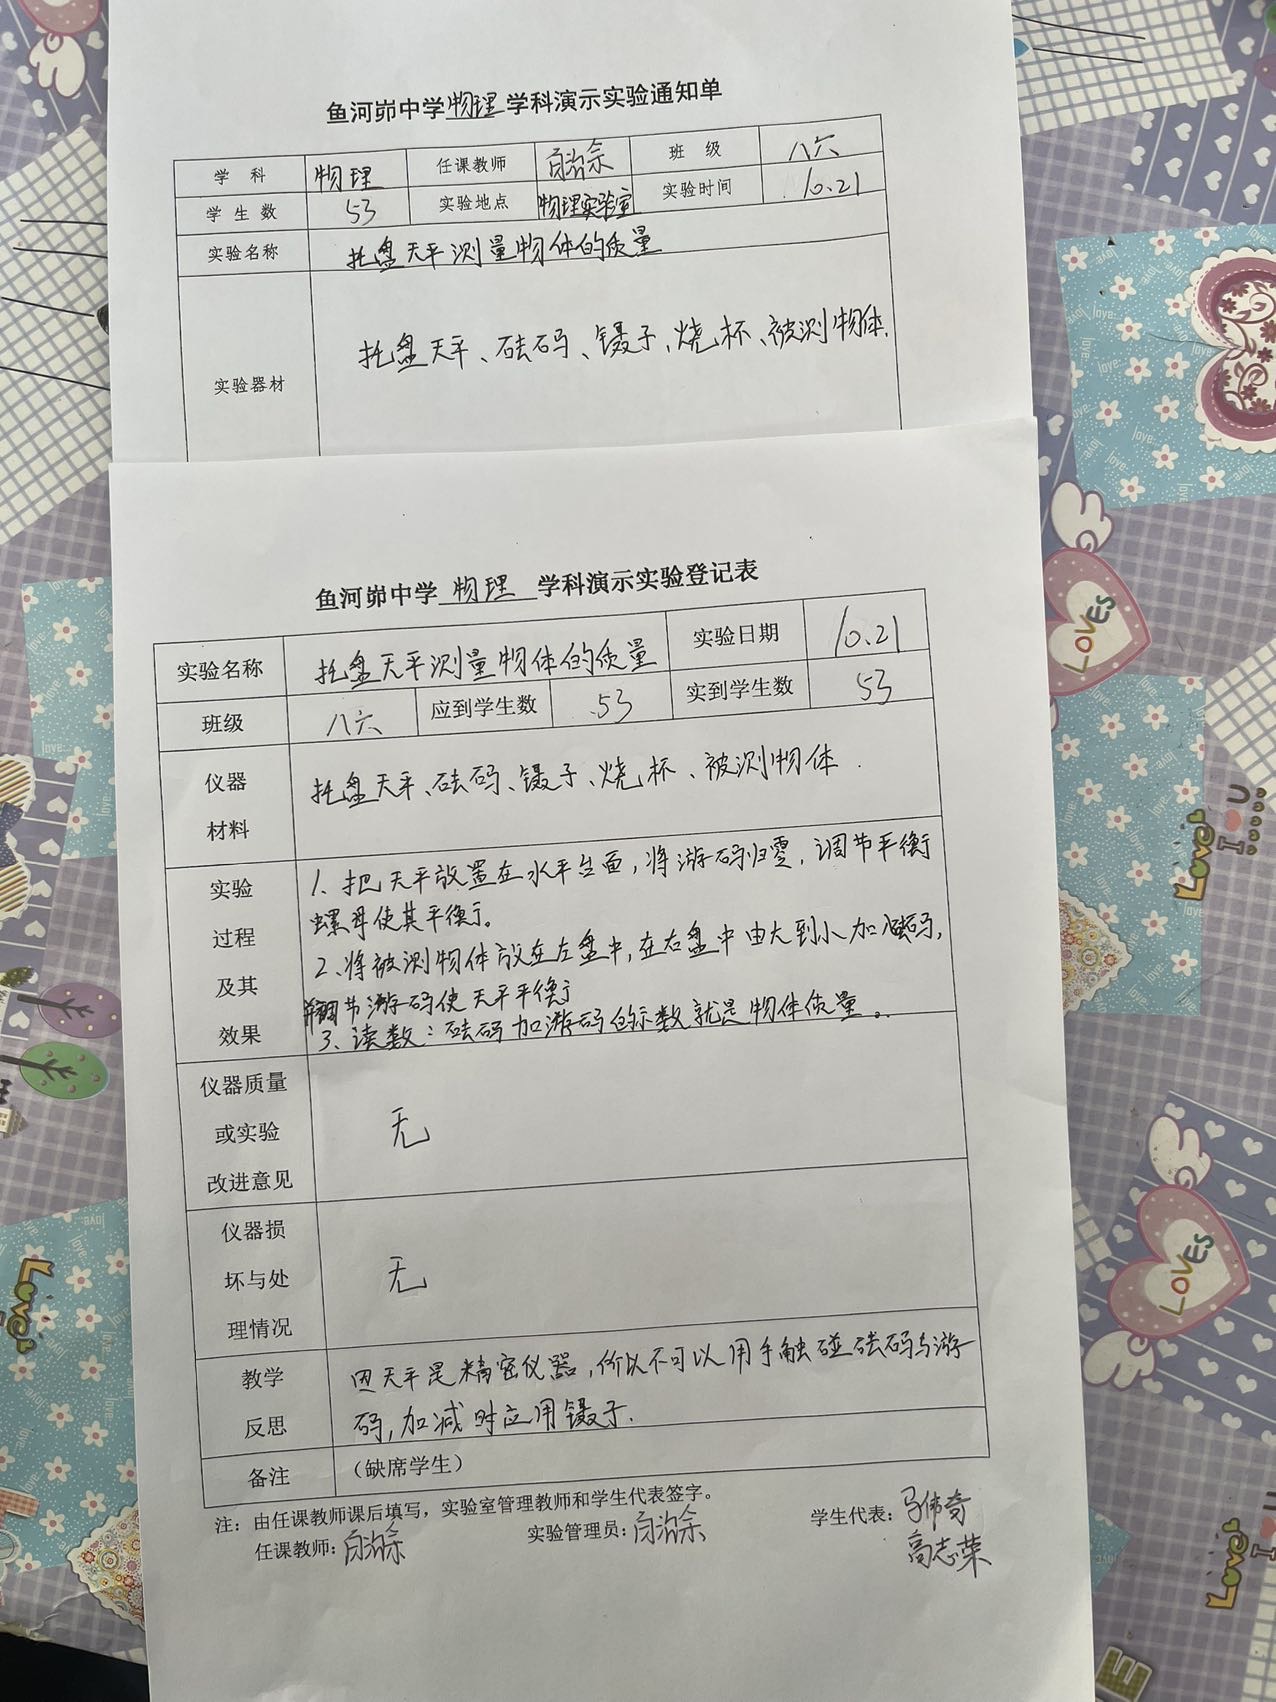 鱼河峁中学物理学科演示实验通知单
学科 物理 任课教师 白治余 班级 八六
学生数 53 实验地点 物理实验室 实验时间 10.21
实验名称 托盘天平测量物体的质量
实验器材 托盘天平、砝码、镊子、烧杯、被测物体.
鱼河峁中学 物理 学科演示实验登记表
实验名称 托盘天平测量物体的质量 实验日期 10.21
班级 八六 应到学生数 53 实到学生数 53
仪器材料 托盘天平、砝码、镊子、烧杯、被测物体.
实验过程及其效果
1、把天平放置在水平台面,将游码归零,调节平衡
螺母使其平衡。
2、将被测物体放在左盘中,在右盘中由大到小加减砝码,
调节游码使天平平衡
3、读数:砝码加游码的示数就是物体质量。
仪器质量或实验改进意见 无
仪器损坏与处理情况 无
教学反思 因天平是精密仪器,所以不可以用手触碰砝码与游
码,加减时应用镊子.
备注 (缺席学生)
注:由任课教师课后填写,实验室管理教师和学生代表签字。
任课教师:白治余 实验管理员:白治余 学生代表:马伟奇
高志荣
LOVES
LOVES
Love
Love
Love
love